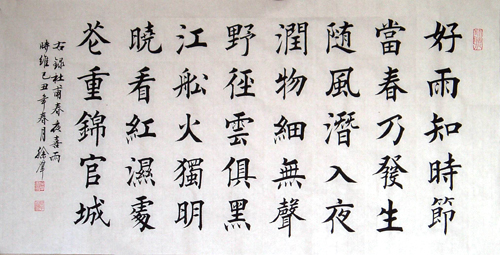 好雨知時節
當春乃發生
随風潛入夜
潤物細無聲
野徑雲俱黑
江舩火獨明
曉看紅濕處
花重錦官城
右録杜甫春夜喜雨
時維己丑年春月徐